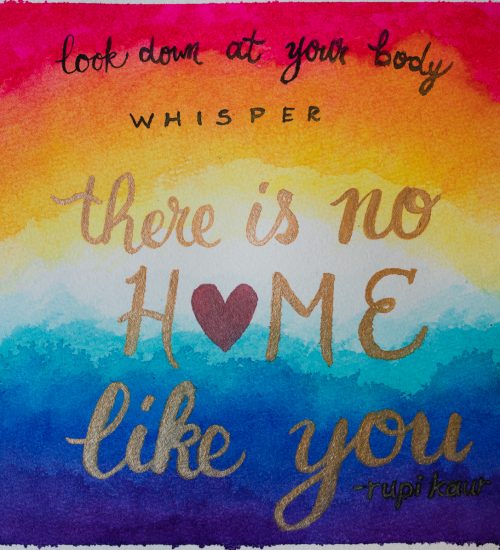 look down at your body
WHISPER
there is no
H♥ME
like you
-rupi kaur